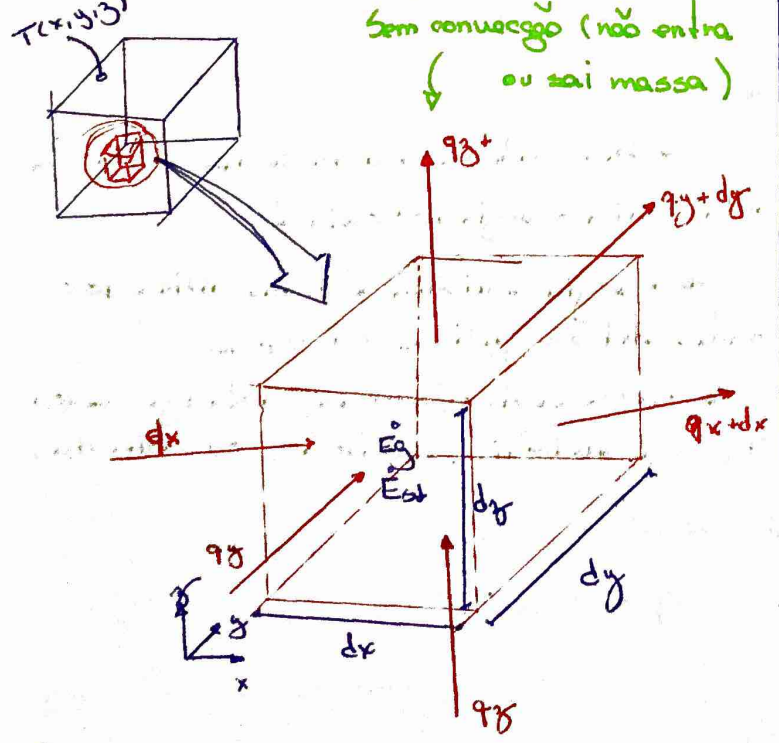 T(x,y,z)
Sem convecção (não entra
ou sai massa)
qz+
qy+dy
qx+dx
qx
Eg
Est
dz
qy
dy
z
y
x
dx
qz